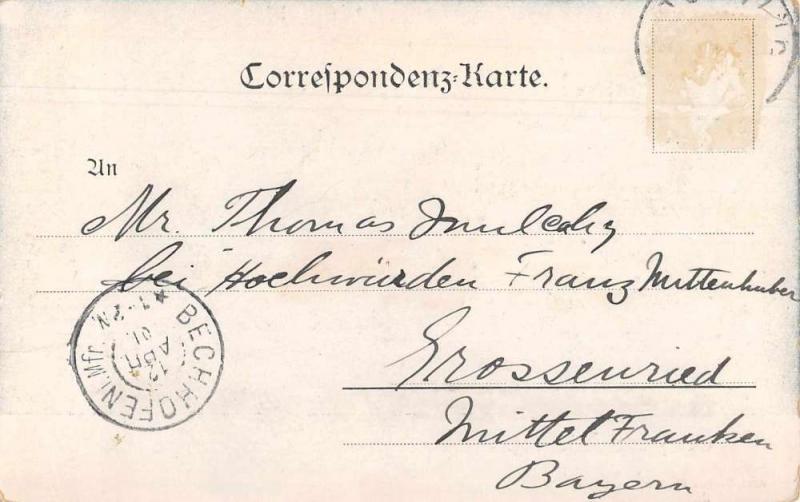 Correspondenz-Karte.
An
Mr. Thomas
bei Hochwürden Franz Mittenhuber
Grossenried
Mittel Franken
Bayern
BECHHOFEN Mfr.
12
APR
01.
1-2N.